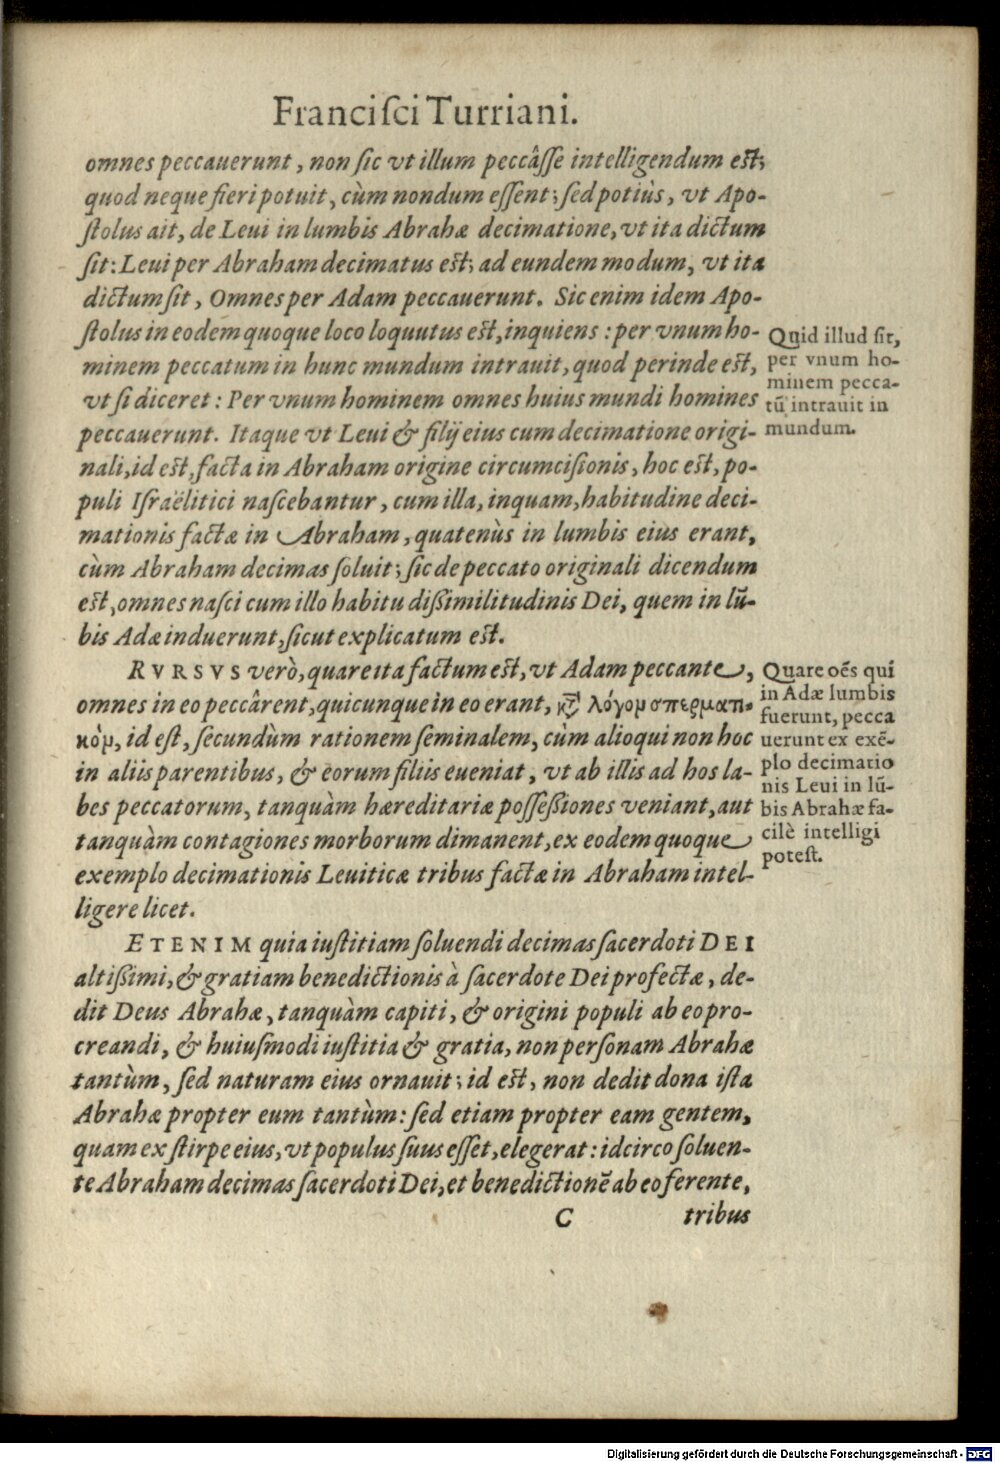 Franciſci Turriani.
omnes peccauerunt, non ſic vt illum peccâſſe intelligendum eſt;
quod neque fieri potuit, cùm nondum eſſent; ſed potiùs, vt Apo-
ſtolus ait, de Leui in lumbis Abrahæ decimatione, vt ita dictum
ſit: Leui per Abraham decimatus eſt; ad eundem modum, vt ita
dictum ſit, Omnes per Adam peccauerunt. Sic enim idem Apo-
ſtolus in eodem quoque loco loquutus eſt, inquiens: per vnum ho-
minem peccatum in hunc mundum intrauit, quod perinde eſt,
vt ſi diceret: Per vnum hominem omnes huius mundi homines
peccauerunt. Itaque vt Leui & filij eius cum decimatione origi-
nali, id eſt, facta in Abraham origine circumciſionis, hoc eſt, po-
puli Iſraëlitici naſcebantur, cum illa, inquam, habitudine deci-
mationis factæ in Abraham, quatenùs in lumbis eius erant,
cùm Abraham decimas ſoluit; ſic de peccato originali dicendum
eſt, omnes naſci cum illo habitu dißimilitudinis Dei, quem in lū-
bis Adæ induerunt, ſicut explicatum eſt.
Quid illud ſit,
per vnum ho-
minem pecca-
tū intrauit in
mundum.
RVRSVS verò, quare ita factum eſt, vt Adam peccante,
omnes in eo peccârent, quicunque in eo erant, κτ̀ λόγομ σπερματι-
κὸμ, id eſt, ſecundùm rationem ſeminalem, cùm alioqui non hoc
in aliis parentibus, & eorum filiis eueniat, vt ab illis ad hos la-
bes peccatorum, tanquàm hæreditariæ poſſeßiones veniant, aut
tanquàm contagiones morborum dimanent, ex eodem quoque
exemplo decimationis Leuiticæ tribus factæ in Abraham intel-
ligere licet.
Quare oēs qui
in Adæ lumbis
fuerunt, pecca
uerunt ex exē-
plo decimatio
nis Leui in lū-
bis Abrahæ fa-
cilè intelligi
poteſt.
ETENIM quia iuſtitiam ſoluendi decimas ſacerdoti DEI
altißimi, & gratiam benedictionis à ſacerdote Dei profectæ, de-
dit Deus Abrahæ, tanquàm capiti, & origini populi ab eo pro-
creandi, & huiuſmodi iuſtitia & gratia, non perſonam Abrahæ
tantùm, ſed naturam eius ornauit; id eſt, non dedit dona iſta
Abrahæ propter eum tantùm: ſed etiam propter eam gentem,
quam ex ſtirpe eius, vt populus ſuus eſſet, elegerat: idcirco ſoluen-
te Abraham decimas ſacerdoti Dei, et benedictionē ab eo ferente,
C tribus
Digitalisierung gefördert durch die Deutsche Forschungsgemeinschaft - DFG